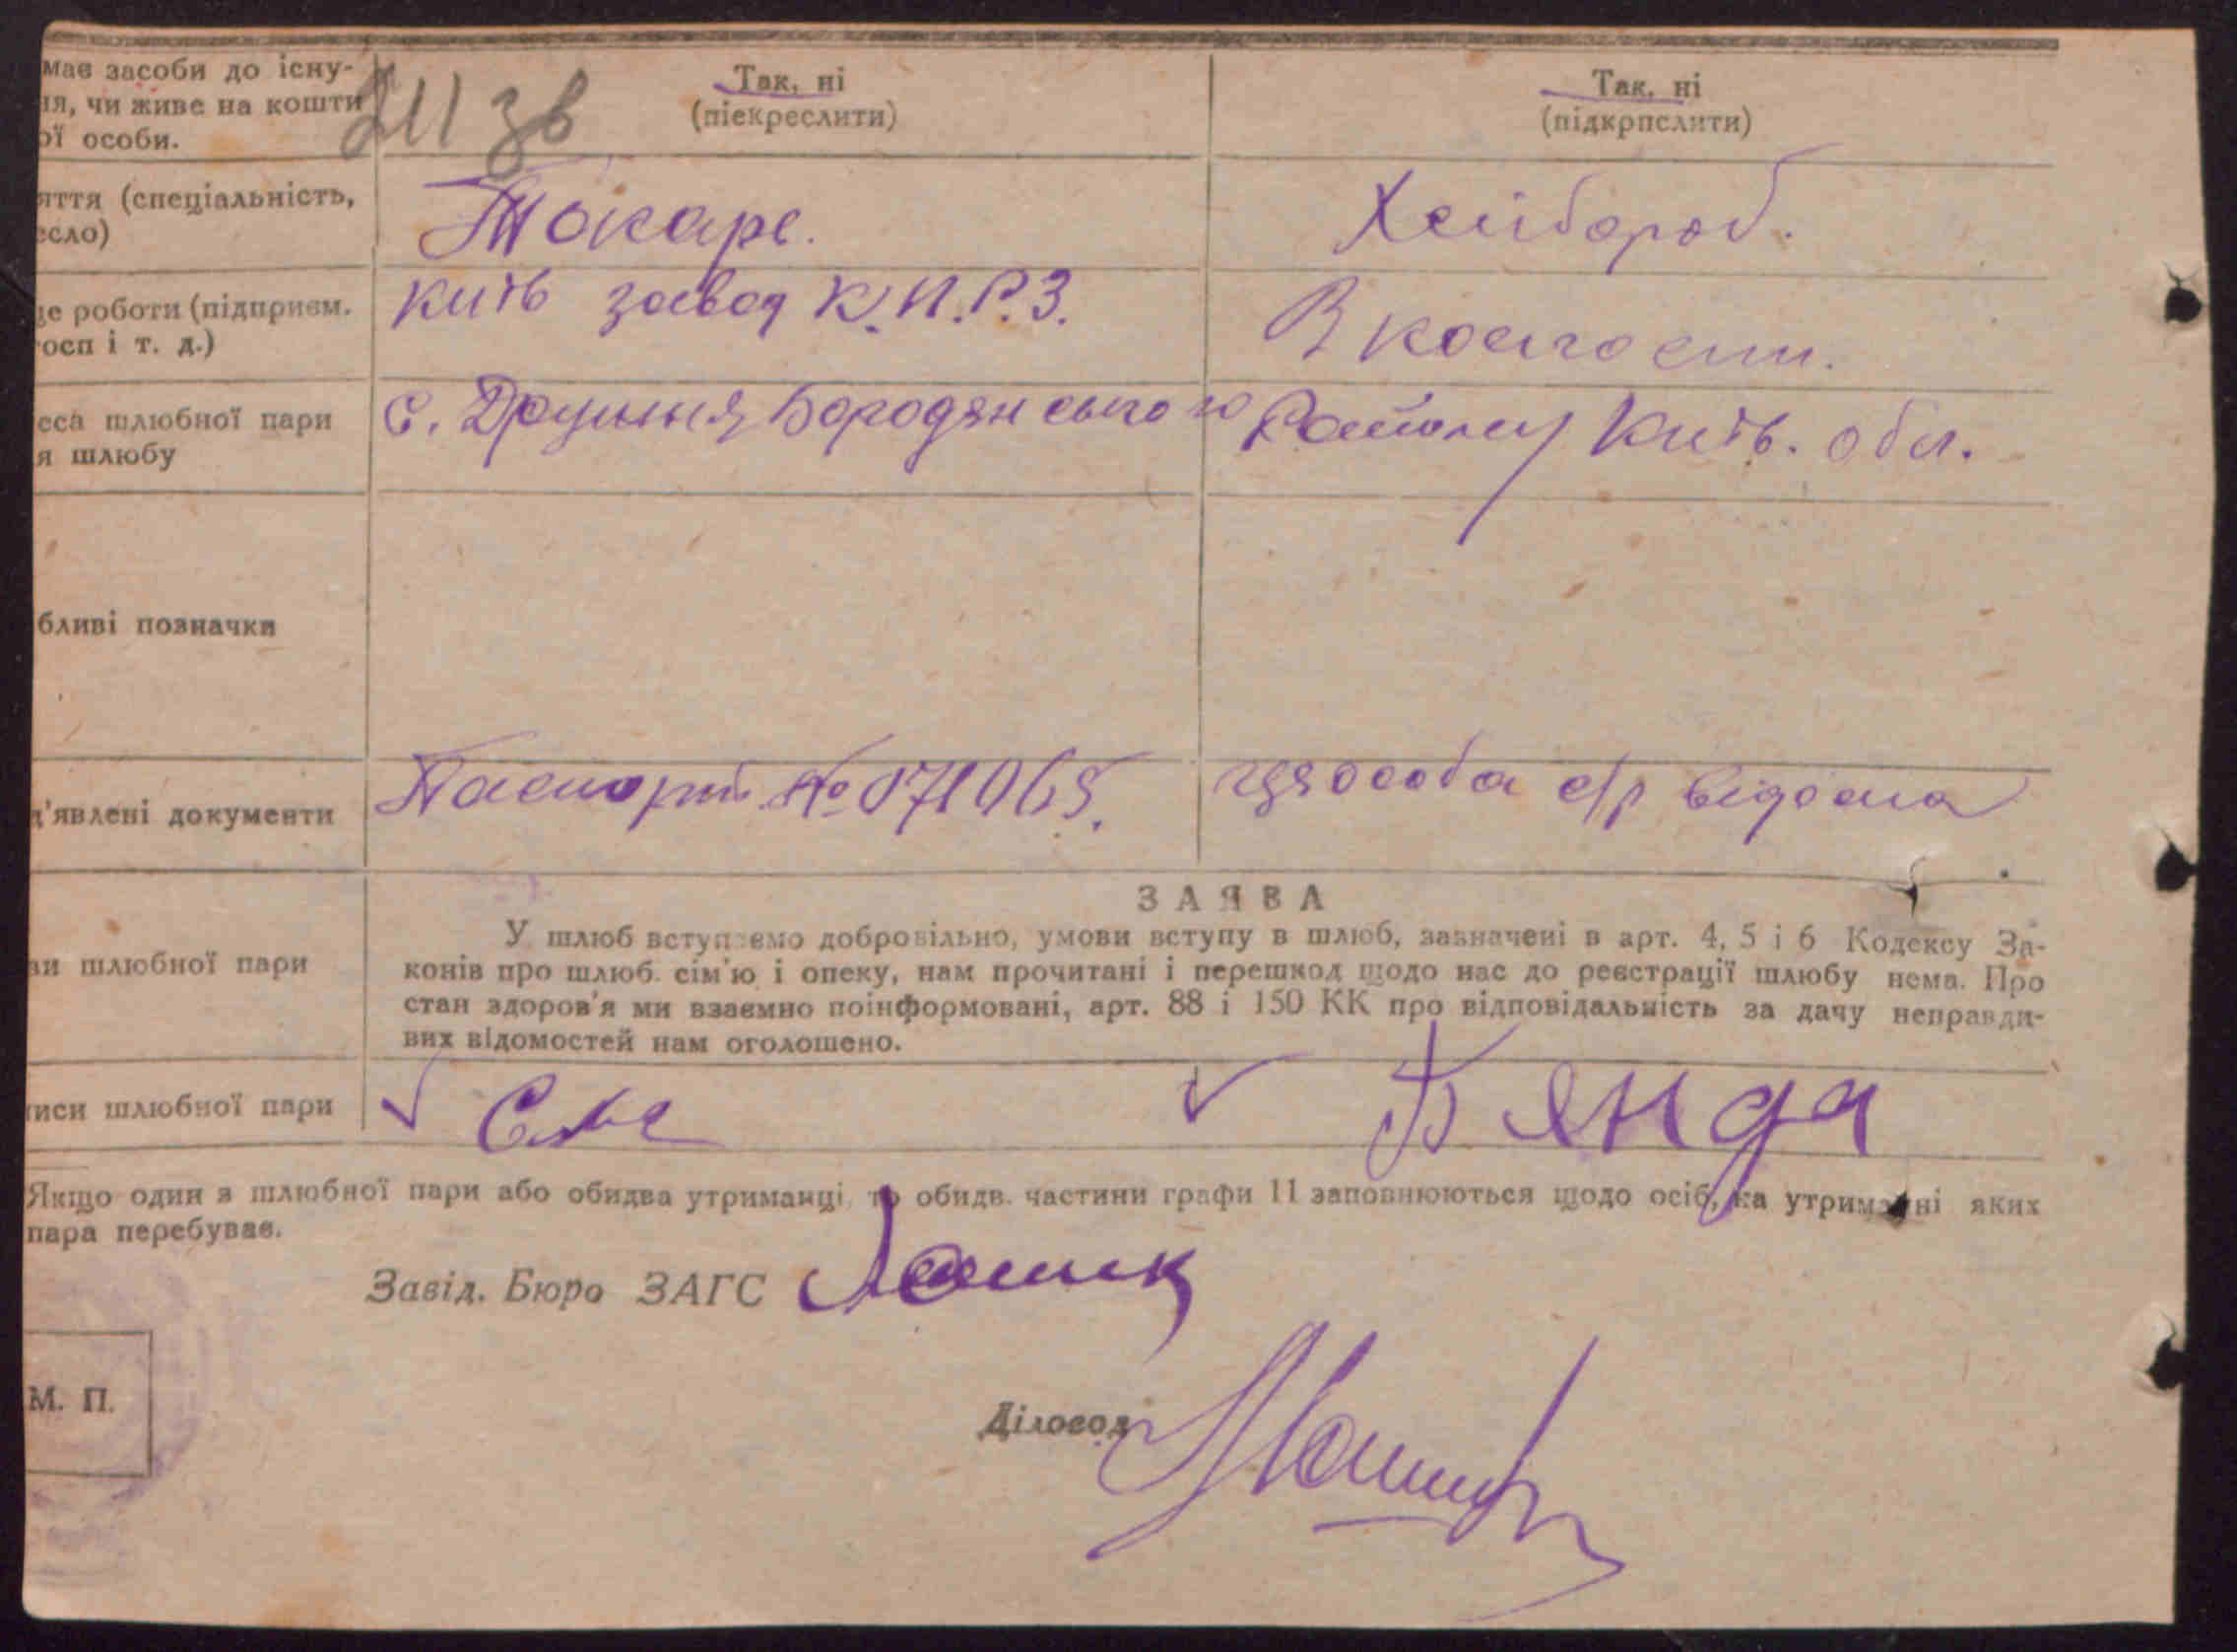 має засоби до існу-
ня, чи живе на кошти
ої особи.
211 зв
Так, ні
(піекреслити)
Так, ні
(підкрпслити)
яття (спеціальність,
есло)
Токарь.
Хлібороб.
це роботи (підприєм.
осп і т. д.)
Київ завод К.П.Р.З.
В колгоспі.
еса шлюбної пари
я шлюбу
С. Дружня, Бородянського Району Київ. обл.
бливі позначки
д'явлені документи
Паспорт № 071065.
ця особа с/р відома
ЗАЯВА
ви шлюбної пари
У шлюб вступаємо добровільно, умови вступу в шлюб, зазначені в арт. 4, 5 і 6 Кодексу За-
конів про шлюб. сім'ю і опеку, нам прочитані і перешкод щодо нас до реєстрації шлюбу нема. Про
стан здоров'я ми взаємно поінформовані, арт. 88 і 150 КК про відповідальність за дачу неправди-
вих відомостей нам оголошено.
иси шлюбної пари
Бянда
Якщо один з шлюбної пари або обидва утриманці, то обидв. частини графи 11 заповнюються щодо осіб, на утриманні яких
пара перебуває.
Завід. Бюро ЗАГС
М. П.
Діловод